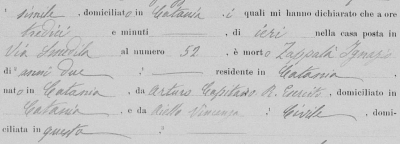 simile, domiciliato in Catania, i quali mi hanno dichiarato che a ore
tredici e minuti —, di ieri nella casa posta in
Via al numero 52, è morto Zappalà Ignazio
di anni due : — residente in Catania,
nato in Catania, da Arturo Capitano R. Eserc., domiciliato in
Catania, e da Aiello Vincenza : Civile, domi-
ciliata in questa : —